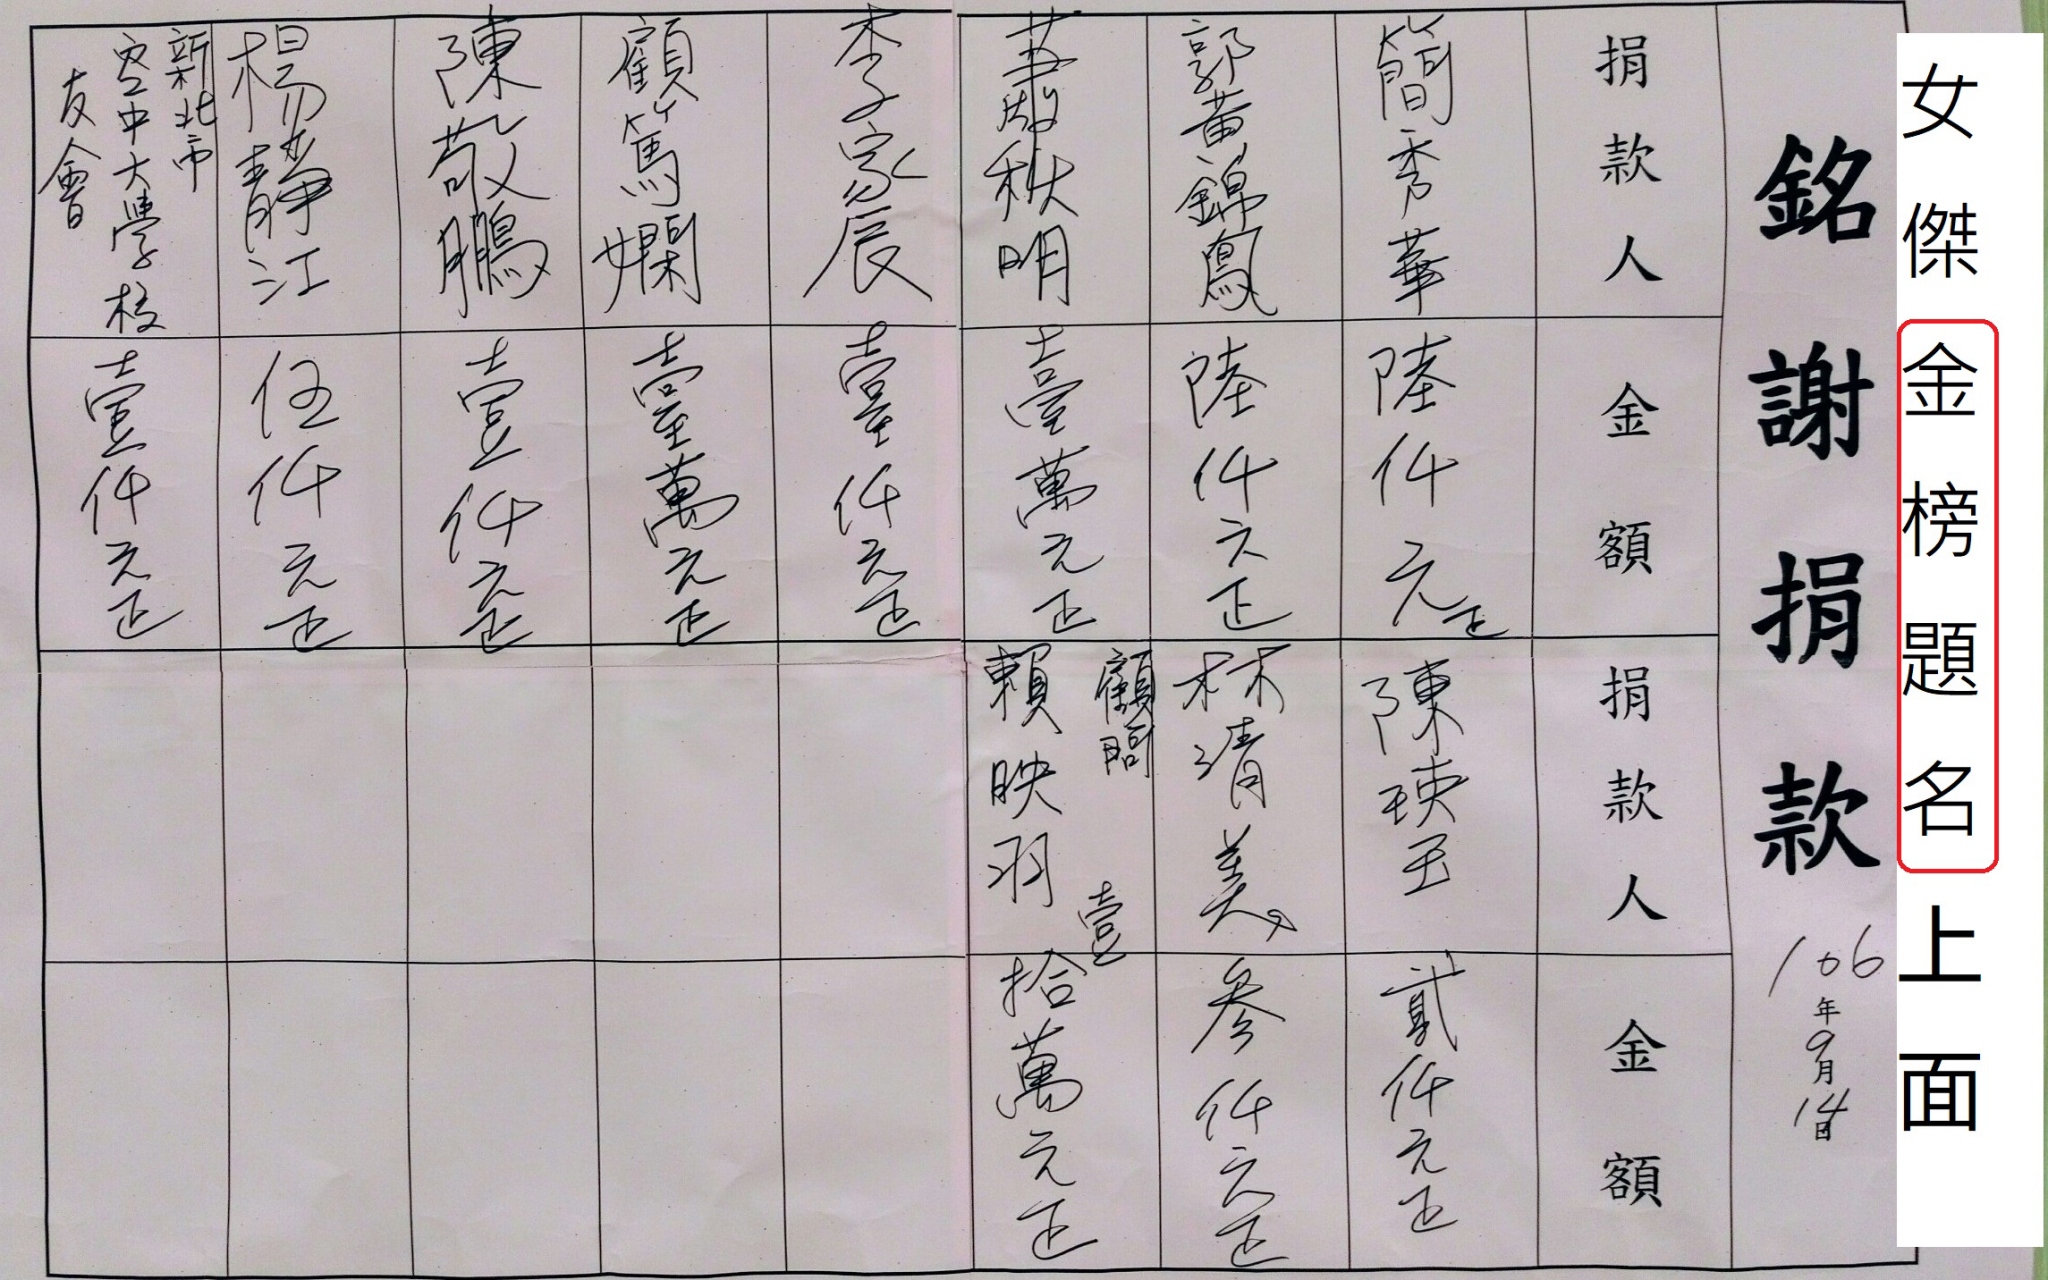 女傑金榜題名上面
銘謝捐款
106年9月14日
捐款人
金額
捐款人
金額
簡秀華
陸仟元正
陳瑛玉
貳仟元正
郭黃錦鳳
陸仟元正
林清美
參仟元正
葉啟秋明
壹萬元正
顧問
賴映羽
壹拾萬元正
李家辰
壹仟元正
顧篤嫻
壹萬元正
陳敬鵬
壹仟元正
楊靜江
伍仟元正
新北市
空中大學校
友會
壹仟元正